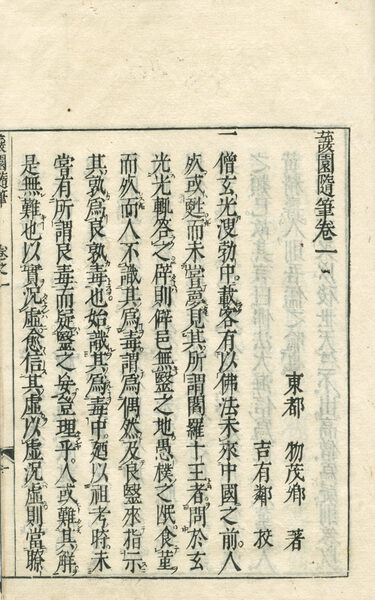 蘐園隨筆卷一
東都 物茂卿 著
吉有鄰 校
一 僧玄光溲勃中載客有以佛法未來中國之前人
死或甦而未嘗夢見其所謂閻羅十王者問於玄
光光輒答之辟則僻邑無醫之地愚樸之氓食菫
而死而人不識其爲毒謂爲偶然及良醫來指示
其孰爲良孰毒也始識其爲毒中廼以祖考時未
嘗有所謂良毒而疑醫之妄豈理乎人或難其解
是無難也以實況虛愈信其虛以虛況虛則當瞭
蘐園隨筆 卷之一